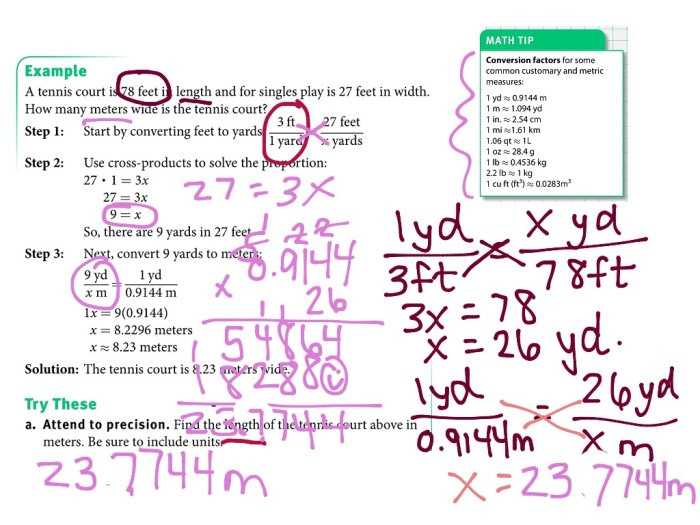 MATH TIP
Conversion factors for some
common customary and metric
measures:
1 yd ≈ 0.9144 m
1 m ≈ 1.094 yd
1 in. ≈ 2.54 cm
1 mi ≈ 1.61 km
1.06 qt ≈ 1L
1 oz ≈ 28.4 g
1 lb ≈ 0.4536 kg
2.2 lb ≈ 1 kg
1 cu ft (ft³) ≈ 0.0283m³
Example
A tennis court is 78 feet in length and for singles play is 27 feet in width.
How many meters wide is the tennis court?
Step 1: Start by converting feet to yards
3 ft 27 feet
1 yard x yards
Step 2: Use cross-products to solve the proportion:
27 · 1 = 3x
27 = 3x
9 = x
So, there are 9 yards in 27 feet
Step 3: Next, convert 9 yards to meters:
9 yd = 1 yd
x m 0.9144 m
1x = 9(0.9144)
x = 8.2296 meters
x ≈ 8.23 meters
Solution: The tennis court is 8.23 meters wide.
Try These
a. Attend to precision. Find the length of the tennis court above in
meters. Be sure to include units.
23.7744m
27 = 3x
1 22
0.9144
x 26
1 1
54864
182880
23.7744
1yd x yd
3ft 78ft
3x = 78
x = 26 yd.
1yd = 26yd
0.9144m x m
x = 23.7744m